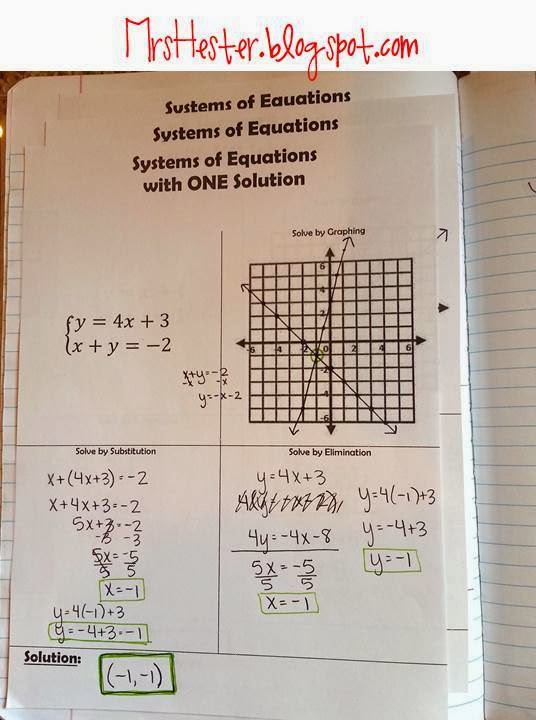 MrsHester.blogspot.com
Systems of Equations
Systems of Equations
Systems of Equations
with ONE Solution
Solve by Graphing
6
4
2
-6 -4 -2 0 2 4 6
-2
-6
y = 4x + 3
x + y = -2
x+y=-2
-x -x
y=-x-2
Solve by Substitution
x+(4x+3)=-2
x+4x+3=-2
5x+3=-2
-3 -3
5x=-5
5 5
x=-1
y=4(-1)+3
y=-4+3=-1
Solve by Elimination
y=4x+3
4y=-4x-8
5x=-5
5 5
x=-1
y=4(-1)+3
y=-4+3
y=-1
Solution:
(-1,-1)